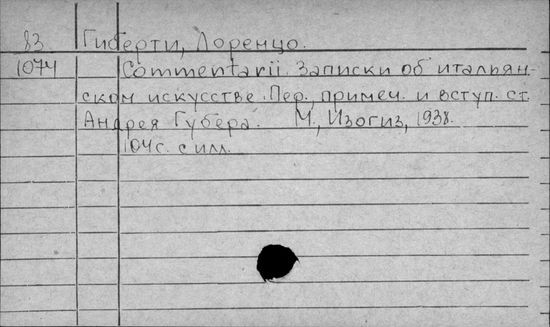 83 Гиберти, Лоренцо.
1074 Commentarii. Записки об итальян-
ском искусстве. Пер., примеч. и вступ. ст.
Андрея Губера. М., Изогиз, 1938.
104с. с илл.